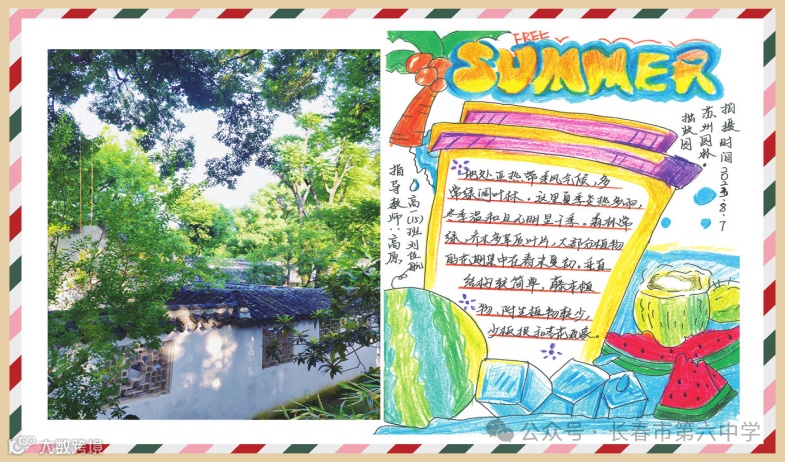 FREE
SUMMER
拍摄时间2023.8.7
苏州园林.
拙政园
地处亚热带季风气候,多
常绿阔叶林。这里夏季炎热多雨,
冬季温和且无明显干季。森林常
绿,乔木多革质叶片,大部分植物
的花期集中在春末夏初。垂直
结构较简单,藤本植
物、附生植物较少,
少板根和茎花现象。
高一(15)班刘佐航
指导教师:高原
公众号·长春市第六中学
大数跨境